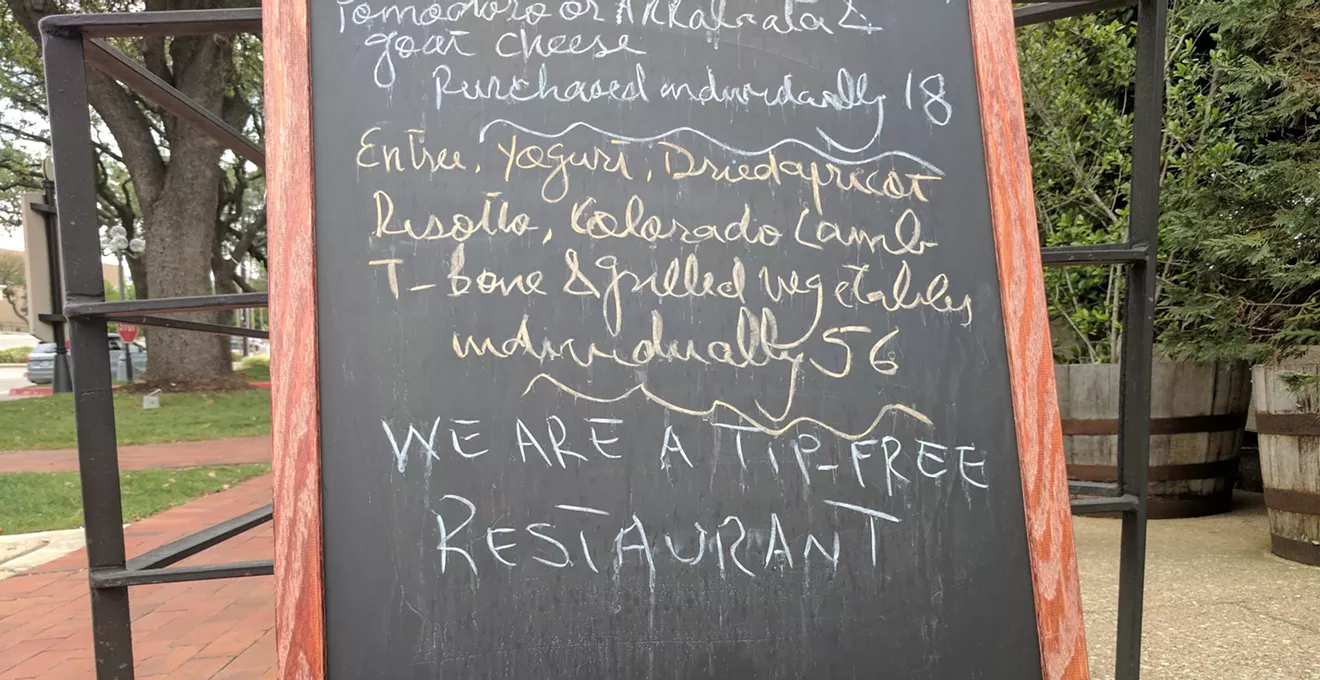 Pomodoro or Arrabiata &
goat cheese
Purchased individually 18
Entree, Yogurt, Dried apricot
Risotto, Colorado Lamb
T-bone & grilled vegetables
individually 56
WE ARE A TIP-FREE
RESTAURANT
STOP